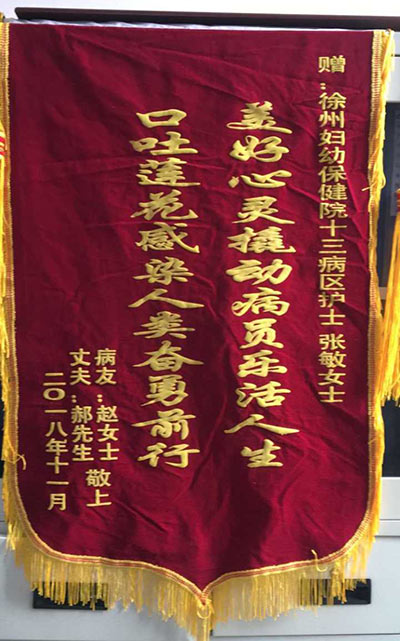 赠：徐州妇幼保健院十三病区护士 张敏女士
美好心灵撬动病员乐活人生
口吐莲花感染人类奋勇前行
病友：赵女士
丈夫：郝先生 敬上
二〇一八年十一月